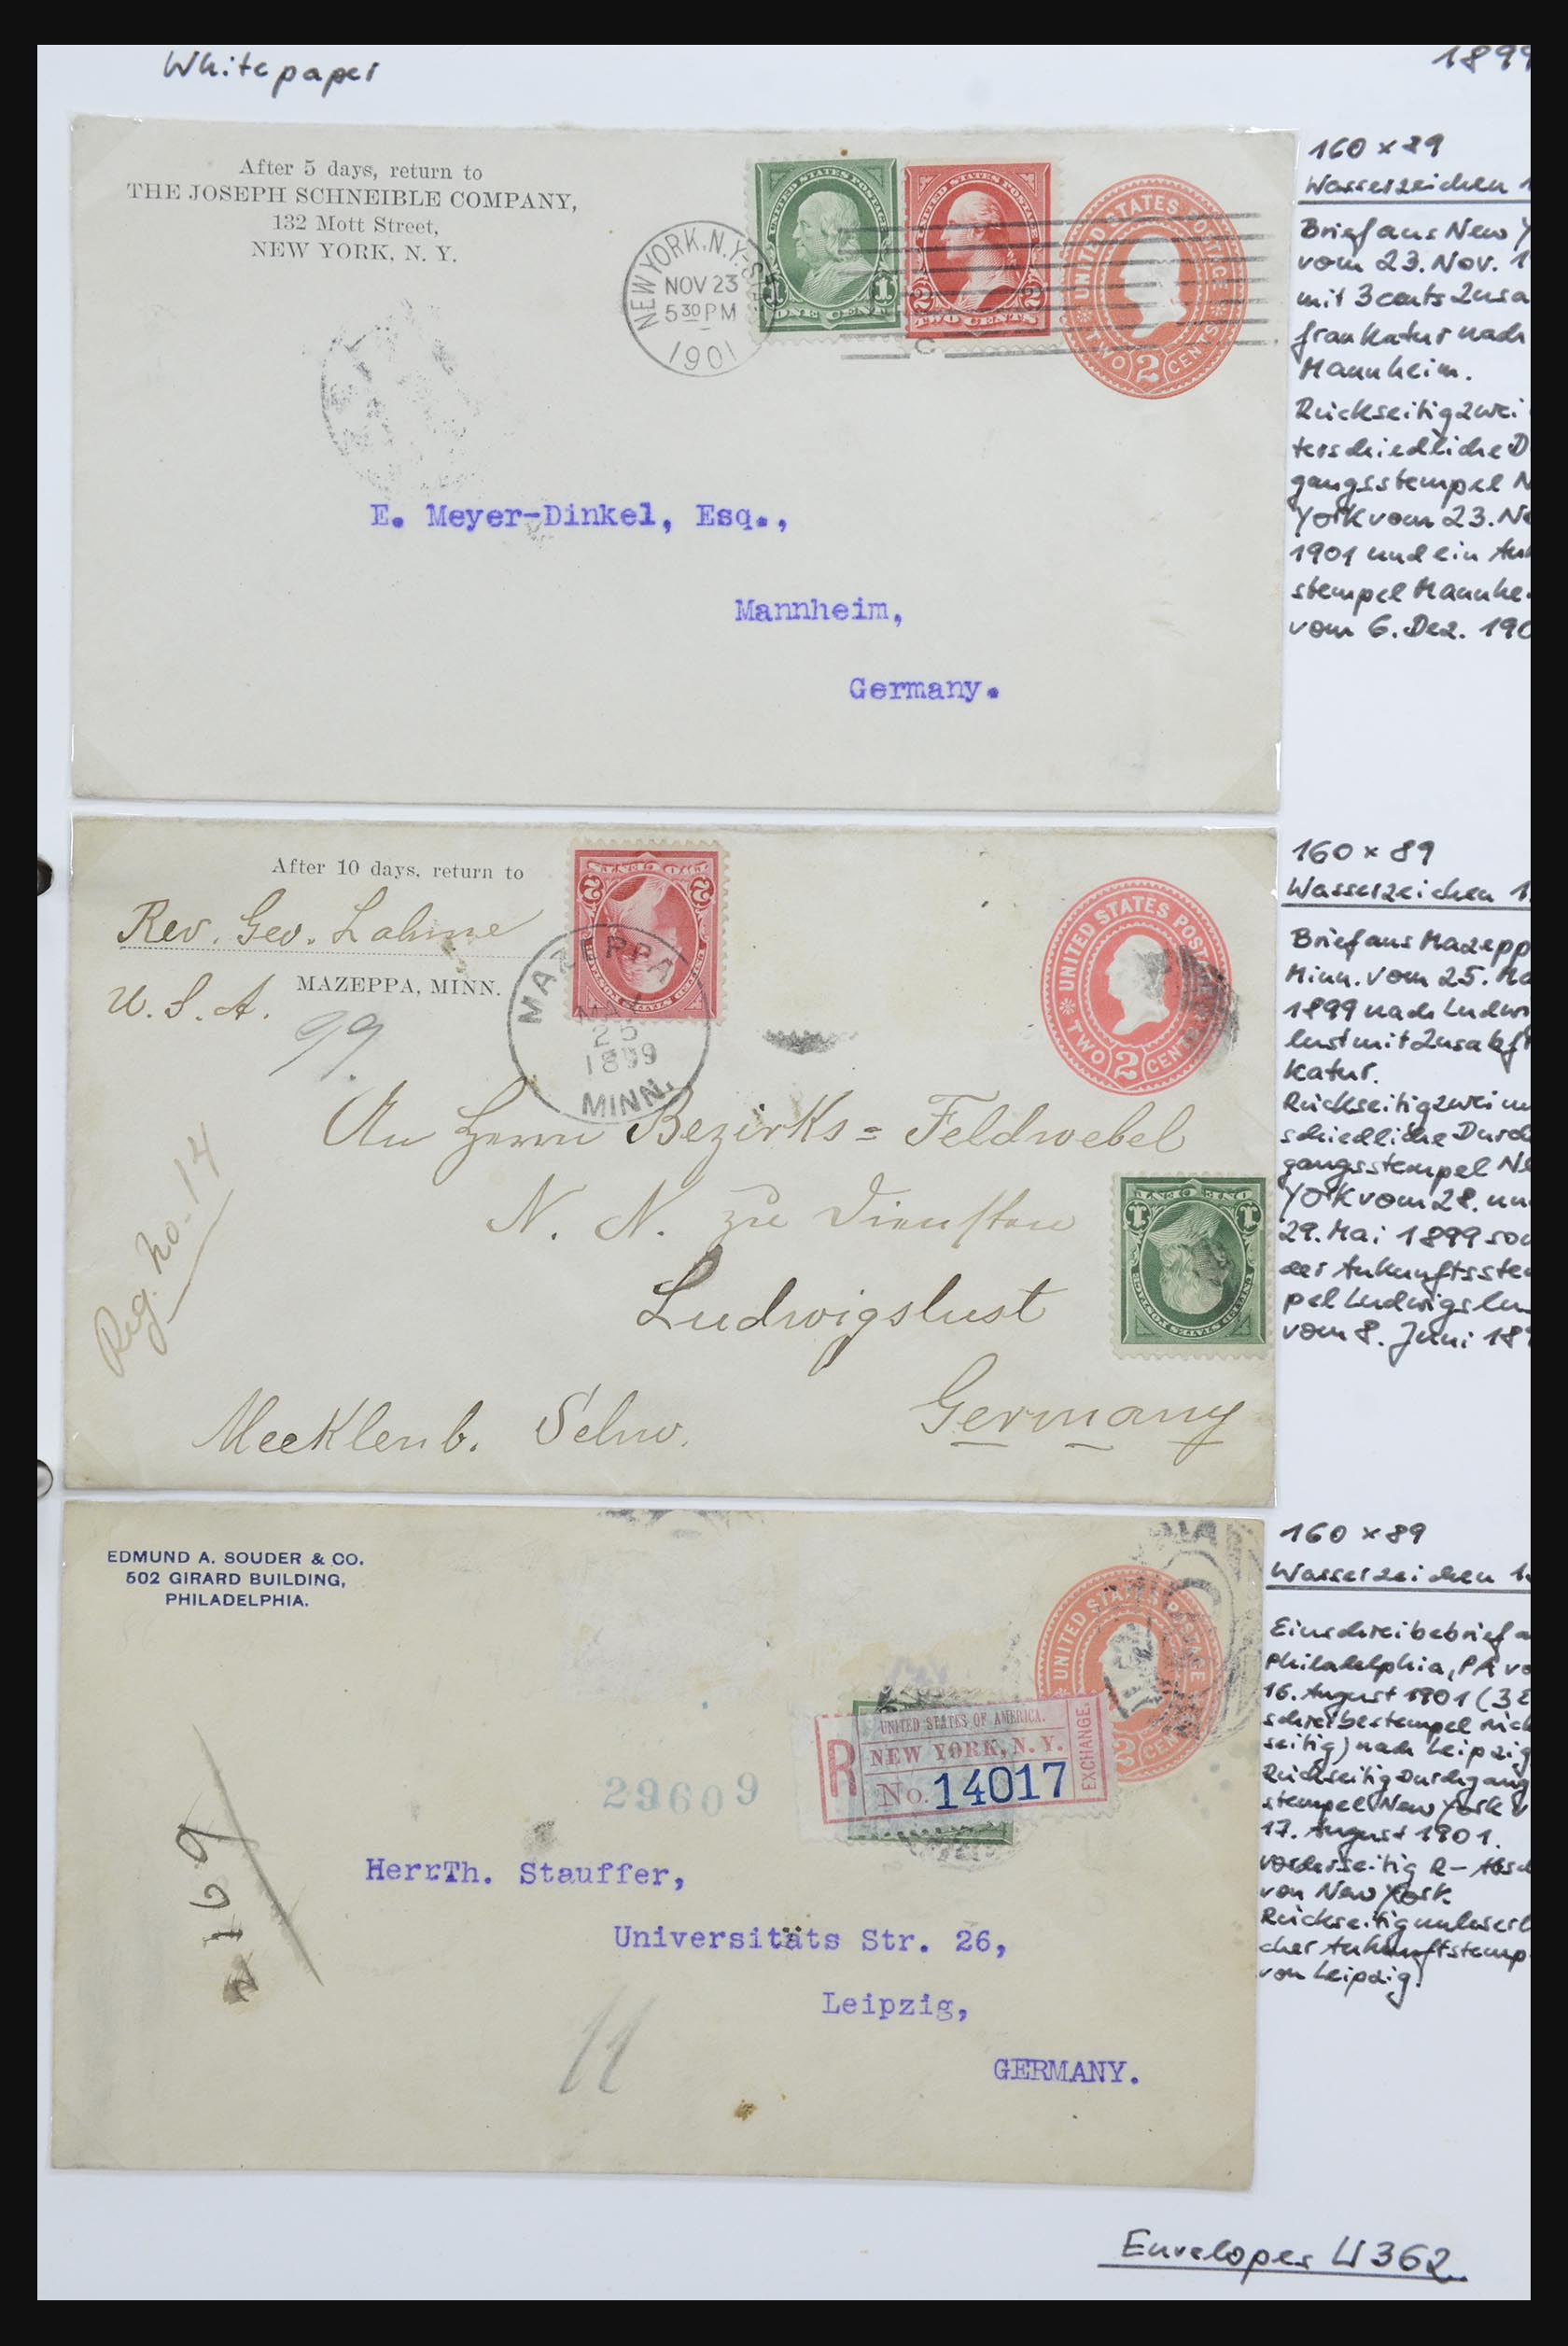 Whitepaper
1899
After 5 days, return to
THE JOSEPH SCHNEIBLE COMPANY,
132 Mott Street,
NEW YORK, N. Y.
NEW YORK, N.Y.
NOV 23
5 30 PM
1901
UNITED STATES POSTAGE
1 1
ONE CENT
UNITED STATES POSTAGE
2 2
TWO CENTS
C
UNITED STATES POSTAGE
TWO 2 CENTS
E. Meyer-Dinkel, Esq.,
Mannheim,
Germany.
160 x 89
Wasserzeichen 1
Brief aus New Y
vom 23. Nov. 1
mit 3 cents Zusa
frankatur nach
Mannheim.
Rückseitig zwei
terschiedliche D
gangsstempel N
York vom 23. No
1901 und ein An
stempel Mannhe
vom 6. Dez. 190
After 10 days, return to
Rev. Geo. Lahme
MAZEPPA, MINN.
U. S. A.
99
2 2
TWO CENTS
UNITED STATES POSTAGE
MAZEPPA
MAY
25
1899
MINN.
UNITED STATES POST
TWO 2 CENT
An Herrn Bezirks=Feldwebel
N. N. zu Diensten
Ludwigslust
Mecklenb. Schw.
Germany
Reg. No. 14
1 1
ONE CENT
UNITED STATES POSTAGE
160 x 89
Wasserzeichen 1
Brief aus Mazepp
Minn. vom 25. Ma
1899 nach Ludwi
lust mit Zusatzf
katur.
Rückseitig zwei un
schiedliche Durch
gangsstempel Ne
York vom 28. un
29. Mai 1899 sow
der Ankunftsstem
pel Ludwigslu
vom 8. Juni 189
EDMUND A. SOUDER & CO.
502 GIRARD BUILDING,
PHILADELPHIA.
UNITED STATES POSTAGE
2 CEN
R
UNITED STATES OF AMERICA.
NEW YORK, N. Y.
No. 14017
EXCHANGE
29609
2169
Herr Th. Stauffer,
Universitäts Str. 26,
Leipzig,
GERMANY.
11
160 x 89
Wasserzeichen 1
Einschreibebrief a
Philadelphia, PA vo
16. August 1901 (3 E
schreibestempel rück
seitig) nach Leipzig
Rückseitig Durchgang
stempel New York v
17. August 1901.
Vorderseitig R-
von New York.
Rückseitig unleserl
cher Ankunftstemp
von Leipzig.
Envelopes U362